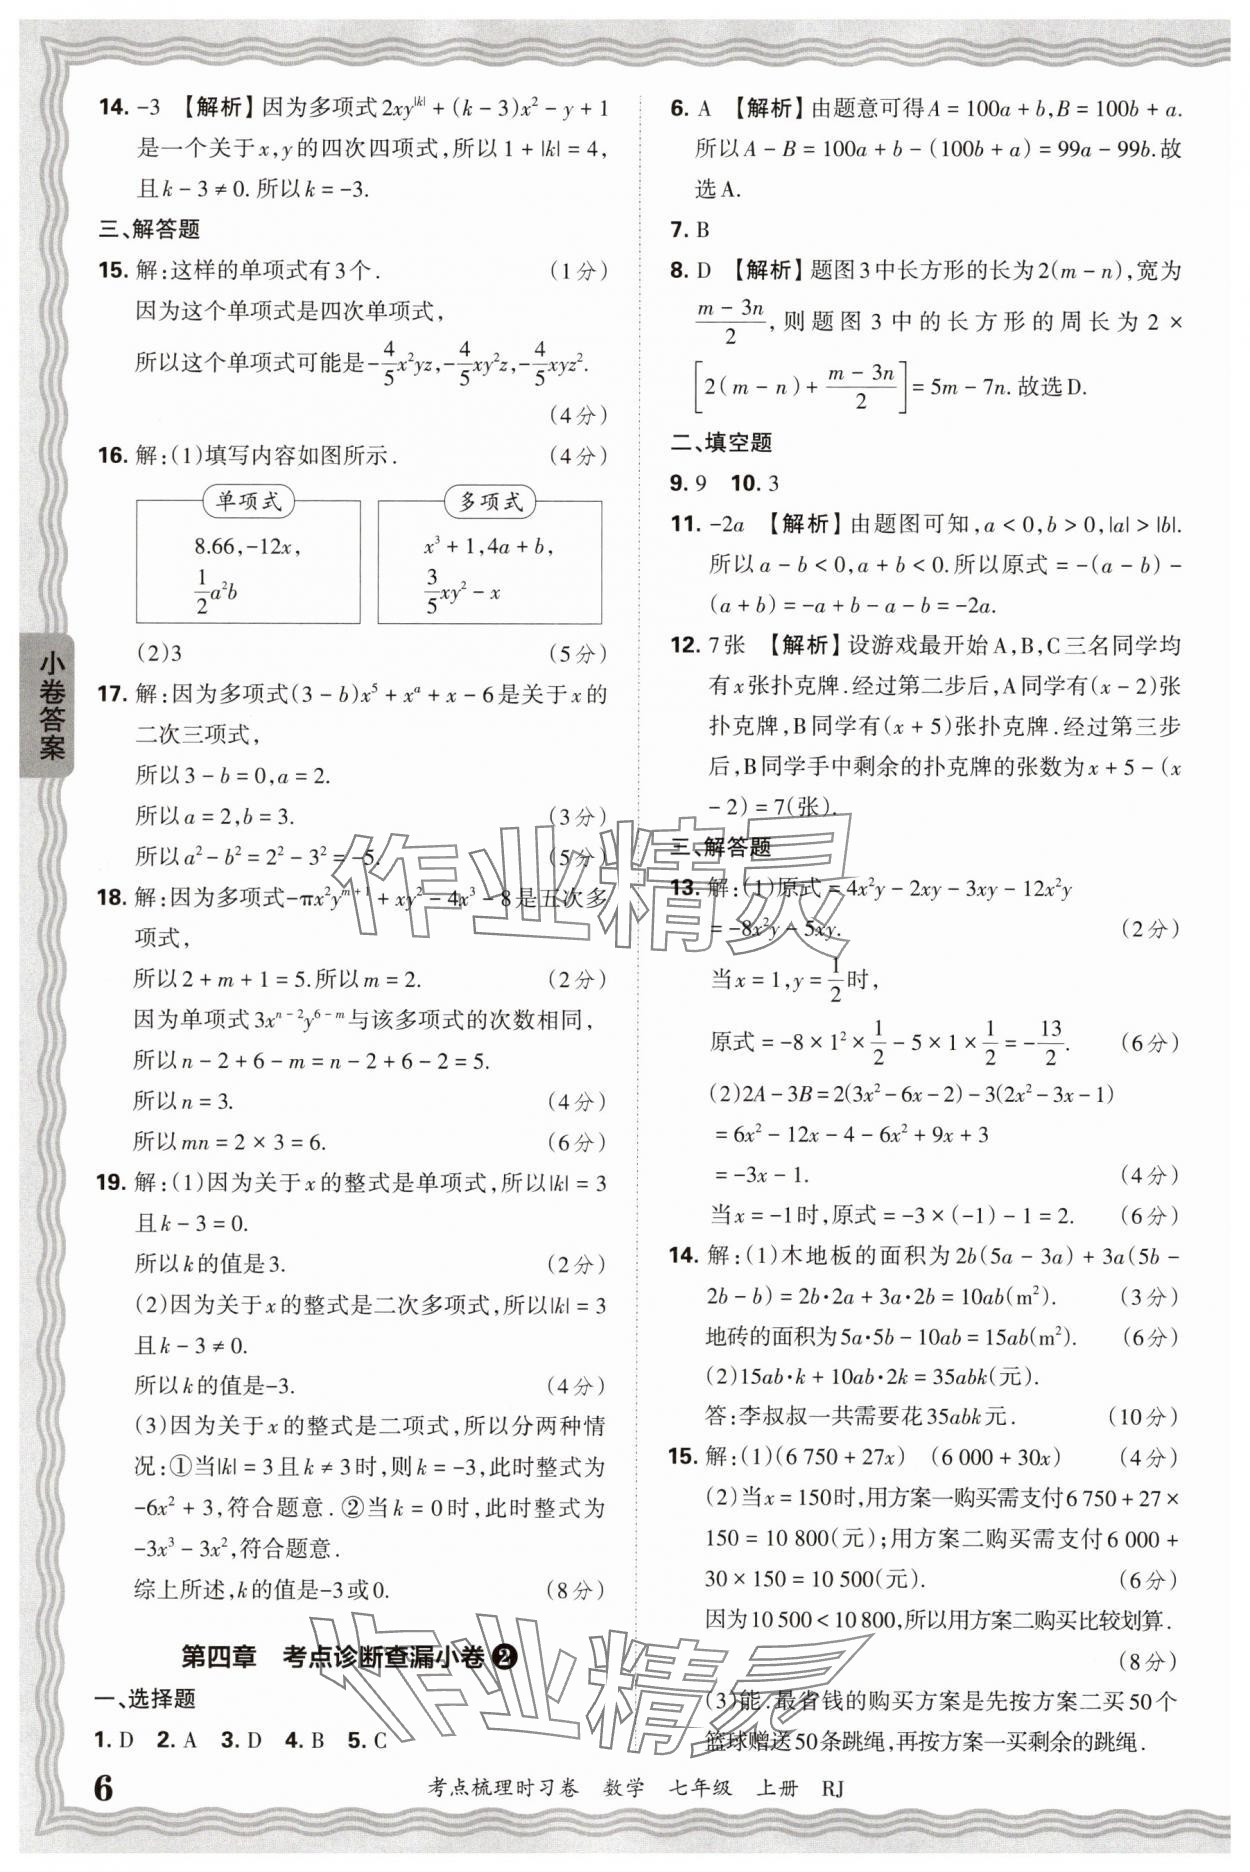 14. -3 【解析】因为多项式2xy^|k| + (k - 3)x² - y + 1
是一个关于x,y的四次四项式,所以1 + |k| = 4,
且k - 3 ≠ 0. 所以k = -3.
三、解答题
15. 解:这样的单项式有3个. (1分)
因为这个单项式是四次单项式,
所以这个单项式可能是-4/5x²yz,-4/5xy²z,-4/5xyz².
(4分)
16. 解:(1)填写内容如图所示. (4分)
单项式 多项式
8.66,-12x, x³ + 1,4a + b,
1/2a²b 3/5xy² - x
(2)3 (5分)
17. 解:因为多项式(3 - b)x⁵ + xᵃ + x - 6是关于x的
二次三项式,
所以3 - b = 0,a = 2.
所以a = 2,b = 3. (3分)
所以a² - b² = 2² - 3² = -5. (5分)
18. 解:因为多项式-πx²y^(m+1) + xy² - 4x³ - 8是五次多
项式,
所以2 + m + 1 = 5.所以m = 2. (2分)
因为单项式3x^(n-2)y^(6-m)与该多项式的次数相同,
所以n - 2 + 6 - m = n - 2 + 6 - 2 = 5.
所以n = 3. (4分)
所以mn = 2 × 3 = 6. (6分)
19. 解:(1)因为关于x的整式是单项式,所以|k| = 3
且k - 3 = 0.
所以k的值是3. (2分)
(2)因为关于x的整式是二次多项式,所以|k| = 3
且k - 3 ≠ 0.
所以k的值是-3. (4分)
(3)因为关于x的整式是二项式,所以分两种情
况:①当|k| = 3且k ≠ 3时,则k = -3,此时整式为
-6x² + 3,符合题意.②当k = 0时,此时整式为
-3x³ - 3x²,符合题意.
综上所述,k的值是-3或0. (8分)
第四章 考点诊断查漏小卷❷
一、选择题
1. D 2. A 3. D 4. B 5. C
6. A 【解析】由题意可得A = 100a + b,B = 100b + a.
所以A - B = 100a + b - (100b + a) = 99a - 99b.故
选A.
7. B
8. D 【解析】题图3中长方形的长为2(m - n),宽为
(m - 3n)/2,则题图3中的长方形的周长为2 ×
[2(m - n) + (m - 3n)/2] = 5m - 7n.故选D.
二、填空题
9. 9 10. 3
11. -2a 【解析】由题图可知,a < 0,b > 0,|a| > |b|.
所以a - b < 0,a + b < 0.所以原式 = -(a - b) -
(a + b) = -a + b - a - b = -2a.
12. 7张 【解析】设游戏最开始A,B,C三名同学均
有x张扑克牌.经过第二步后,A同学有(x - 2)张
扑克牌,B同学有(x + 5)张扑克牌.经过第三步
后,B同学手中剩余的扑克牌的张数为x + 5 - (x
- 2) = 7(张).
三、解答题
13. 解:(1)原式 = 4x²y - 2xy - 3xy - 12x²y
= -8x²y - 5xy. (2分)
当x = 1,y = 1/2时,
原式 = -8 × 1² × 1/2 - 5 × 1 × 1/2 = -13/2. (6分)
(2)2A - 3B = 2(3x² - 6x - 2) - 3(2x² - 3x - 1)
= 6x² - 12x - 4 - 6x² + 9x + 3
= -3x - 1. (4分)
当x = -1时,原式 = -3 × (-1) - 1 = 2. (6分)
14. 解:(1)木地板的面积为2b(5a - 3a) + 3a(5b -
2b - b) = 2b·2a + 3a·2b = 10ab(m²). (3分)
地砖的面积为5a·5b - 10ab = 15ab(m²). (6分)
(2)15ab·k + 10ab·2k = 35abk(元).
答:李叔叔一共需要花35abk元. (10分)
15. 解:(1)(6 750 + 27x) (6 000 + 30x) (4分)
(2)当x = 150时,用方案一购买需支付6 750 + 27 ×
150 = 10 800(元);用方案二购买需支付6 000 +
30 × 150 = 10 500(元). (6分)
因为10 500 < 10 800,所以用方案二购买比较划算.
(8分)
(3)能.最省钱的购买方案是先按方案二买50个
篮球赠送50条跳绳,再按方案一买剩余的跳绳.
小卷答案
作业精灵
作业精灵
6 考点梳理时习卷 数学 七年级 上册 RJ